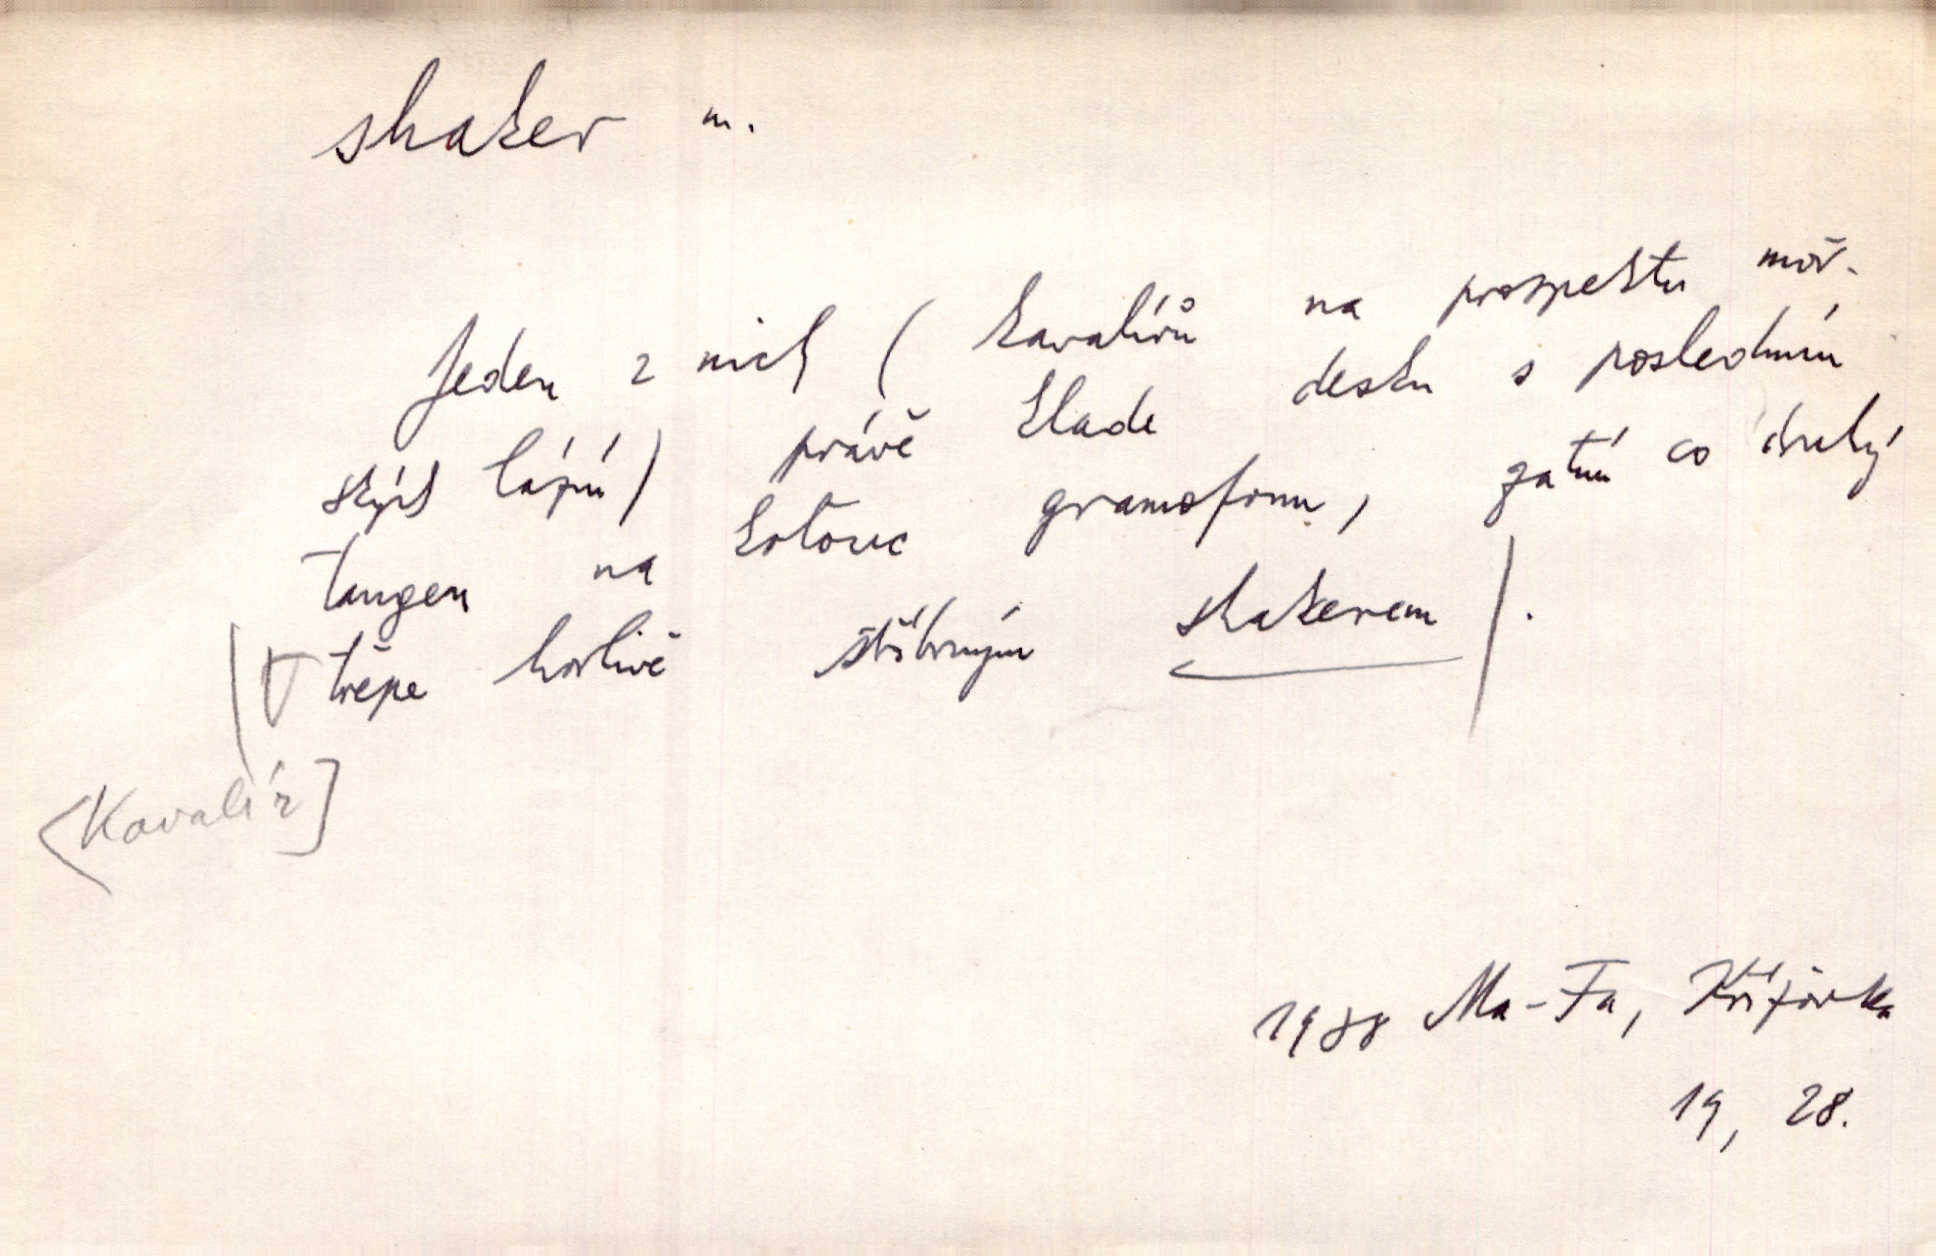 shaker m.
Jeden z nich ( kavalírů na prospektu moř-
ských lázní) právě klade desku s posledním
tangem na kotouč gramofonu, zatím co druhý
třepe horlivě stříbrným shakerem.
<Kavalír]
1988 Ma-Fa, Křižovka
19, 28.